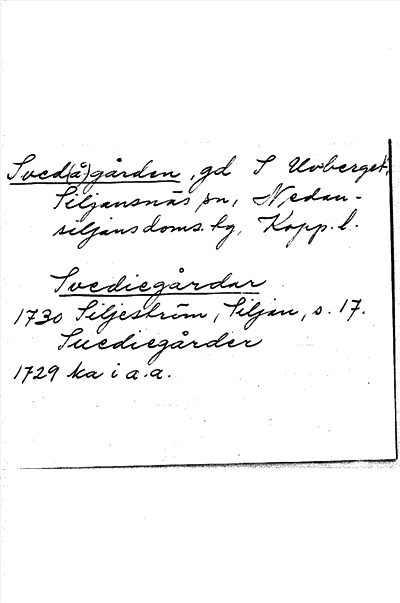 Sved(å)gården, gd S Uvberget,
Siljansnäs sn, Nedan-
siljans doms. tg, Kopp. l.
Svediegårdar
1730 Siljeström, Siljan, s. 17.
Suediegårder
1729 ka i a.a.